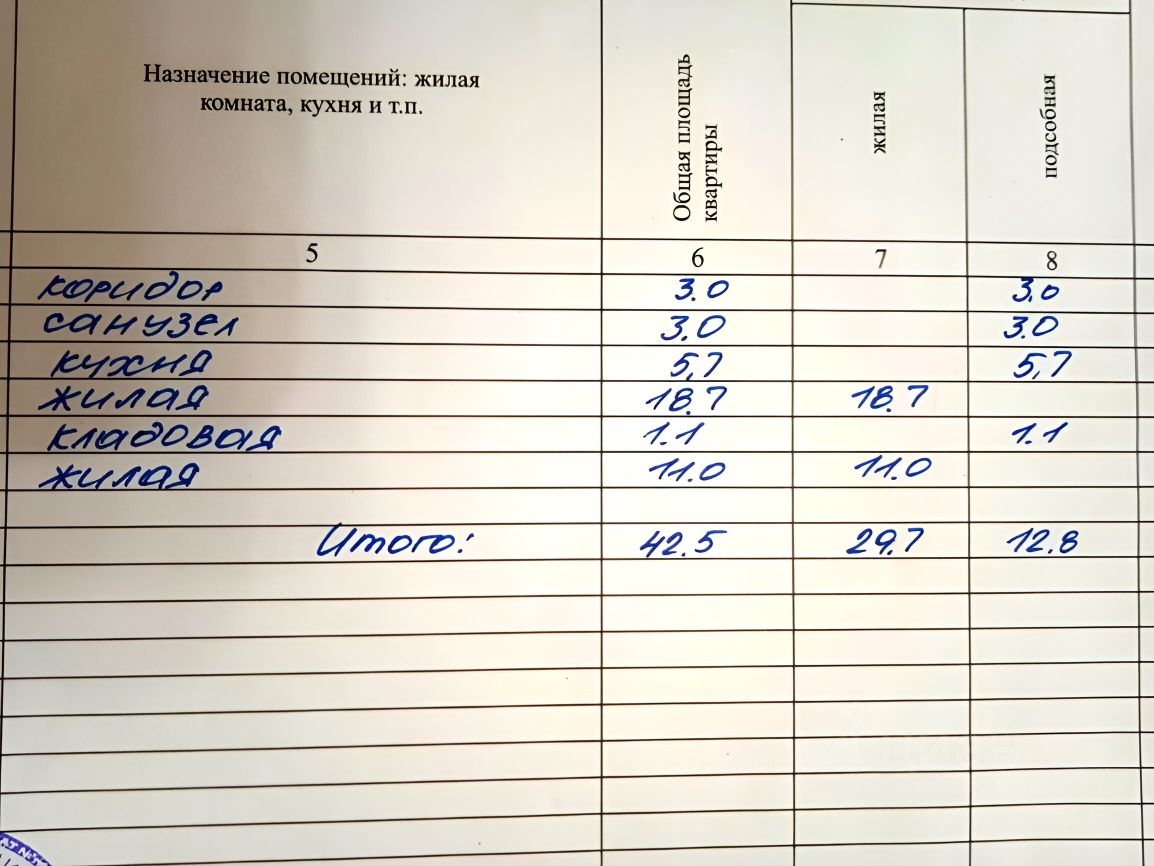 Назначение помещений: жилая
комната, кухня и т.п.
Общая площадь
квартиры
жилая
подсобная
5 6 7 8
коридор 3.0 3.0
санузел 3.0 3.0
кухня 5,7 5,7
жилая 18.7 18.7
кладовая 1.1 1.1
жилая 11.0 11.0
Итого: 42.5 29.7 12.8